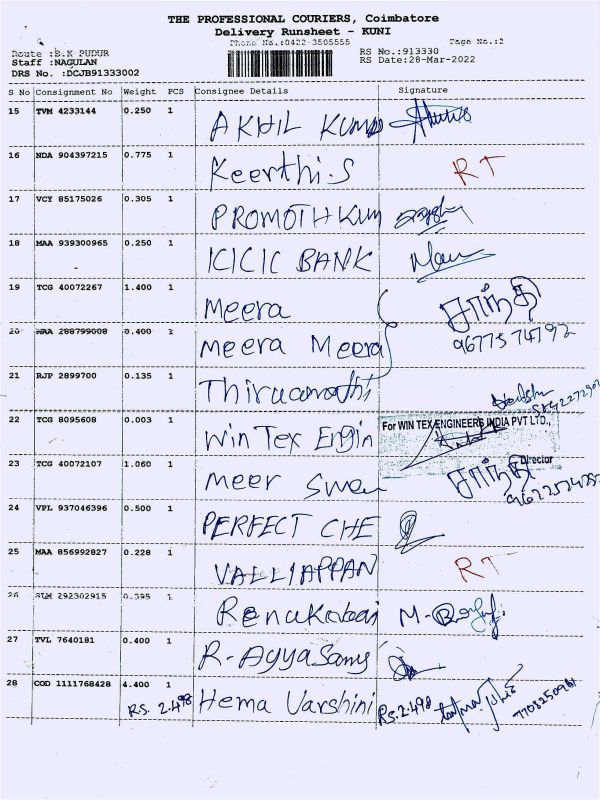 THE PROFESSIONAL COURIERS, Coimbatore
Delivery Runsheet - KUNI
Phone No.:0422-3505555 Page No.:2
Route :B.K PUDUR RS No.:913330
Staff :NAGULAN RS Date:28-Mar-2022
DRS No. :DCJB91333002
S No Consignment No Weight PCS Consignee Details Signature
15 TVM 4233144 0.250 1 AKHIL KUM
16 NDA 904397215 0.775 1 Keerthi.S RT
17 VCY 85175026 0.305 1 PROMOTH KUM
18 MAA 939300965 0.250 1 ICICIC BANK
19 TCG 40072267 1.400 1 Meera சாந்தி
9677574792
20 MAA 288799008 0.400 1 Meera Meera
21 RJP 2899700 0.135 1 Thirucamathi
22 TCG 8095608 0.003 1 Win Tex Engin For WIN TEX ENGINEERS INDIA PVT LTD.,
Director
23 TCG 40072107 1.060 1 Meer சாந்தி
24 VPL 937046396 0.500 1 PERFECT CHE
25 MAA 856992827 0.228 1 VALLIAPPAN RT
26 SLM 292302915 0.395 1 Renukabai
27 TVL 7640181 0.400 1 R-Ayyasamy
28 COD 1111768428 4.400 1 Hema Varshini
Rs. 2.498 Rs.2.498